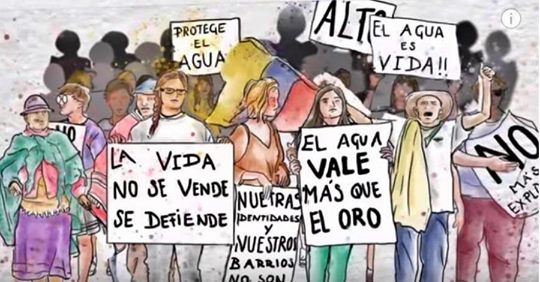 PROTEGE
EL
AGUA
ALTO
EL AGUA
ES
VIDA!!
NO
LA VIDA
NO SE VENDE
SE DEFIENDE
NUESTRAS
IDENTIDADES
Y
NUESTROS
BARRIOS
NO SON
EL AGUA
VALE
MÁS QUE
EL ORO
NO
MÁS